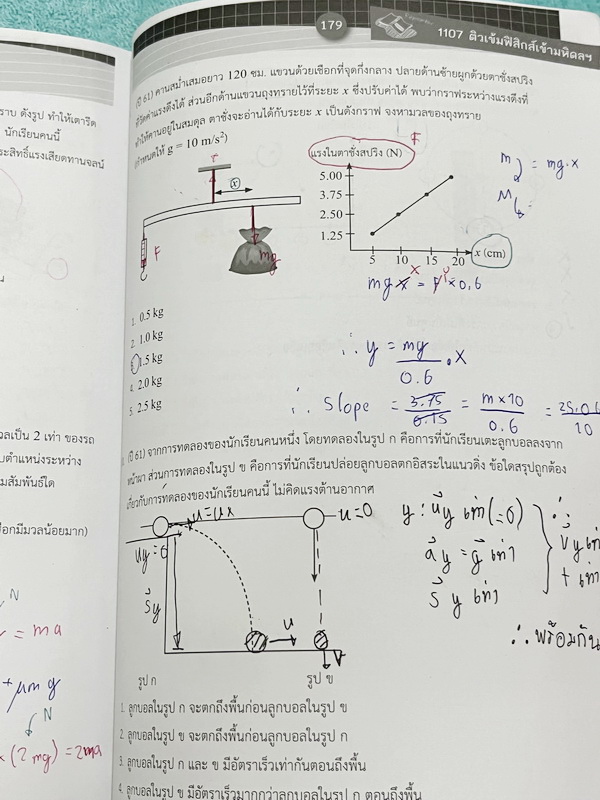 179
1107 ติวเข้มฟิสิกส์เข้ามหิดลฯ
(ปี 61) คานสม่ำเสมอยาว 120 ซม. แขวนด้วยเชือกที่จุดกึ่งกลาง ปลายด้านซ้ายผูกด้วยตาชั่งสปริง
ที่วัดค่าแรงดึงได้ ส่วนอีกด้านแขวนถุงทรายไว้ที่ระยะ x ซึ่งปรับค่าได้ พบว่ากราฟระหว่างแรงดึงที่
ทำให้คานอยู่ในสมดุล ตาชั่งจะอ่านได้กับระยะ x เป็นดังกราฟ จงหามวลของถุงทราย
(กำหนดให้ g = 10 m/s²)
ราบ ดังรูป ทำให้เตารีด
นักเรียนคนนี้
ประสิทธิ์แรงเสียดทานจลน์
F
แรงในตาชั่งสปริง (N)
5.00
3.75
2.50
1.25
5 10 15 20
x (cm)
x
F
mg
= mg·x
mg x = F × 0.6
1. 0.5 kg
2. 1.0 kg
3. 1.5 kg
4. 2.0 kg
5. 2.5 kg
∴ y = mg/0.6 · x
∴ slope = 3.75/0.15 = m×10/0.6 =
วลเป็น 2 เท่า ของรถ
บตำแหน่งระหว่าง
มสัมพันธ์ใด
ือกมีมวลน้อยมาก)
(ปี 61) จากการทดลองของนักเรียนคนหนึ่ง โดยทดลองในรูป ก คือการที่นักเรียนเตะลูกบอลลงจาก
หน้าผา ส่วนการทดลองในรูป ข คือการที่นักเรียนปล่อยลูกบอลตกอิสระในแนวดิ่ง ข้อใดสรุปถูกต้อง
เกี่ยวกับการทดลองของนักเรียนคนนี้ ไม่คิดแรงต้านอากาศ
u=ux
u=0
uy=0
Sy
u
v
y : uy เท่า (=0)
ay = g เท่า
S y เท่า
∴
vy เท่
t เท่า
∴ พร้อมกัน
N
= ma
+ μmg
N
× (2mg) = 2ma
รูป ก
รูป ข
1. ลูกบอลในรูป ก จะตกถึงพื้นก่อนลูกบอลในรูป ข
2. ลูกบอลในรูป ข จะตกถึงพื้นก่อนลูกบอลในรูป ก
3. ลูกบอลในรูป ก และ ข มีอัตราเร็วเท่ากันตอนถึงพื้น
4. ลูกบอลในรูป ข มีอัตราเร็วมากกว่าลูกบอลในรูป ก ตอนถึงพื้น